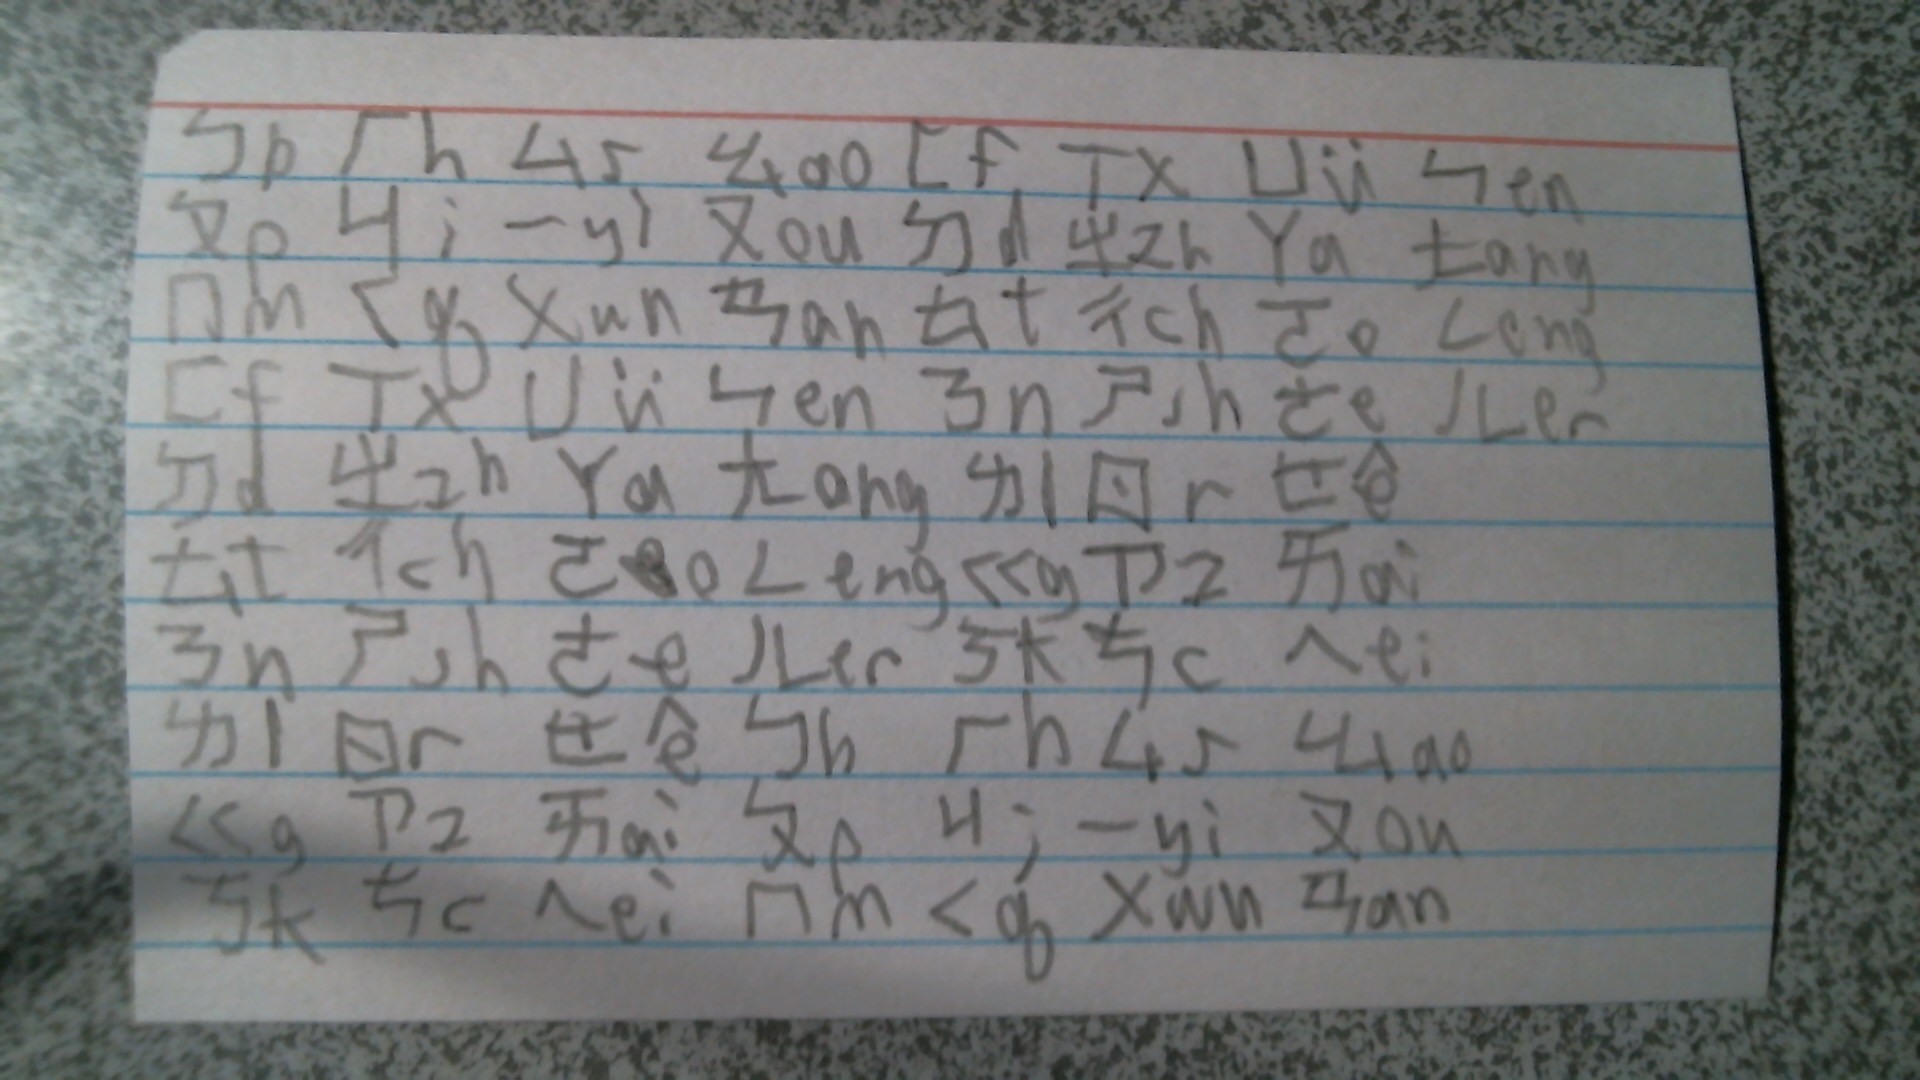 ㄅb ㄏh ㄙs ㄠao ㄈf ㄒx ㄩü ㄣen
ㄆp ㄐj ㄧyi ㄡou ㄉd ㄓzh ㄚa ㄤang
ㄇm ㄑq ㄨwn ㄢan ㄊt ㄔch ㄛo ㄥeng
ㄈf ㄒx ㄩü ㄣen ㄋn ㄕsh ㄜe ㄦer
ㄉd ㄓzh ㄚa ㄤang ㄌl ㄖr ㄝê
ㄊt ㄔch ㄛo ㄥeng ㄍg ㄗz ㄞai
ㄋn ㄕsh ㄜe ㄦer ㄎk ㄘc ㄟei
ㄌl ㄖr ㄝê ㄅb ㄏh ㄙs ㄠao
ㄍg ㄗz ㄞai ㄆp ㄐj ㄧyi ㄡou
ㄎk ㄘc ㄟei ㄇm ㄑq ㄨwn ㄢan